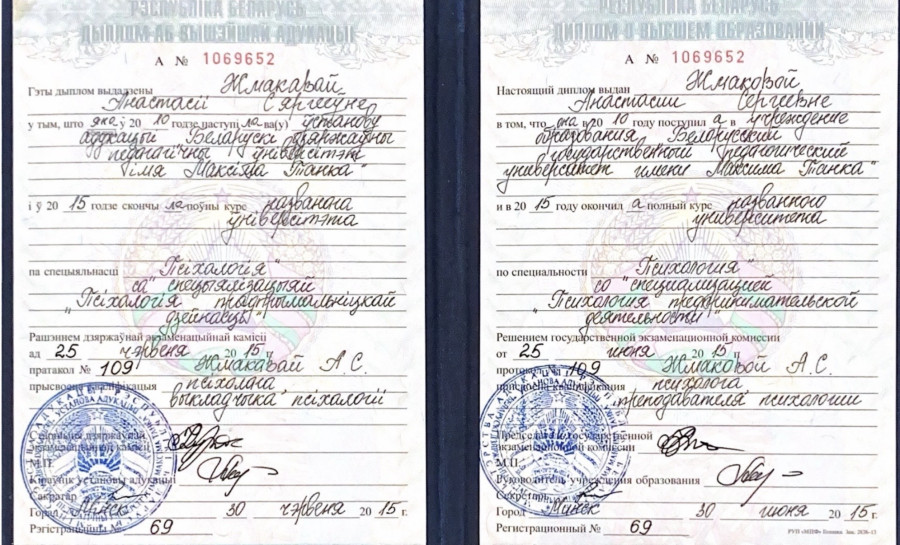 РЭСПУБЛІКА БЕЛАРУСЬ
ДЫПЛОМ АБ ВЫШЭЙШАЙ АДУКАЦЫІ
А № 1069652
Гэты дыплом выдадзены Жмакавай
Анастасіі Сяргееўне
у тым, што яна ў 2010 годзе паступіла ва(у) установу
адукацыі „Беларускі дзяржаўны
педагагічны ўніверсітэт
імя Максіма Танка"
і ў 2015 годзе скончыла поўны курс названага
ўніверсітэта
па спецыяльнасці „Псіхалогія"
са спецыялізацыяй
„Псіхалогія прадпрымальніцкай
дзейнасці"
Рашэннем дзяржаўнай экзаменацыйнай камісіі
ад 25 чэрвеня 2015 г.
пратакол № 109 Жмакавай А.С.
прысвоена кваліфікацыя псіхолага
выкладчыка псіхалогіі
Старшыня дзяржаўнай
экзаменацыйнай камісіі
М.П.
Кіраўнік установы адукацыі
Сакратар
Горад Мінск 30 чэрвеня 2015 г.
Рэгістрацыйны № 69
РЕСПУБЛИКА БЕЛАРУСЬ
ДИПЛОМ О ВЫСШЕМ ОБРАЗОВАНИИ
А № 1069652
Настоящий диплом выдан Жмаковой
Анастасии Сергеевне
в том, что она в 2010 году поступила в учреждение
образования „Белорусский
государственный педагогический
университет имени Максима Танка"
и в 2015 году окончила полный курс названного
университета
по специальности „Психология"
со специализацией
„Психология предпринимательской
деятельности"
Решением государственной экзаменационной комиссии
от 25 июня 2015 г.
протокол № 109 Жмаковой А.С.
присвоена квалификация психолога
преподавателя психологии
Председатель государственной
экзаменационной комиссии
М.П.
Руководитель учреждения образования
Секретарь
Город Минск 30 июня 2015 г.
Регистрационный № 69